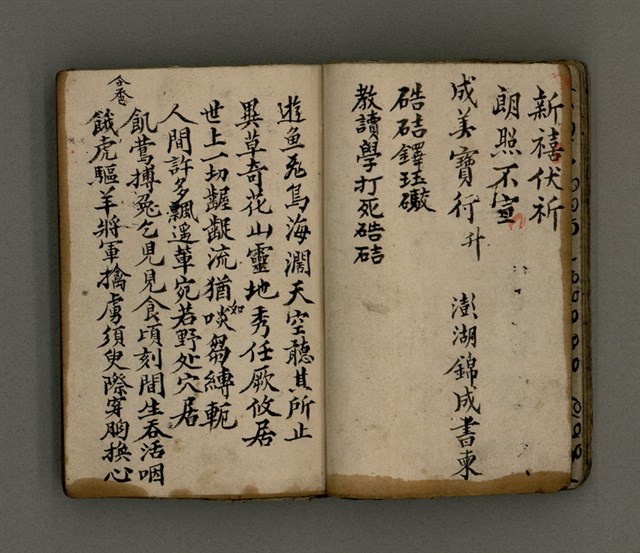 新禧伏祈
朗照不宣
成美寶行升 澎湖錦成書柬
硞硈鐸珏礮
教讀學打死硞硈
遊鱼飛鳥海濶天空聽其所止
異草奇花山靈地秀任厥攸居
世上一切齷齪流猶如啖芻縛軛
人間許多飄遥輩宛若野处穴居
飢鶯搏兔乞児見食頃刻間生吞活咽
餓虎驅羊將軍擒虜須臾際穿胸換心